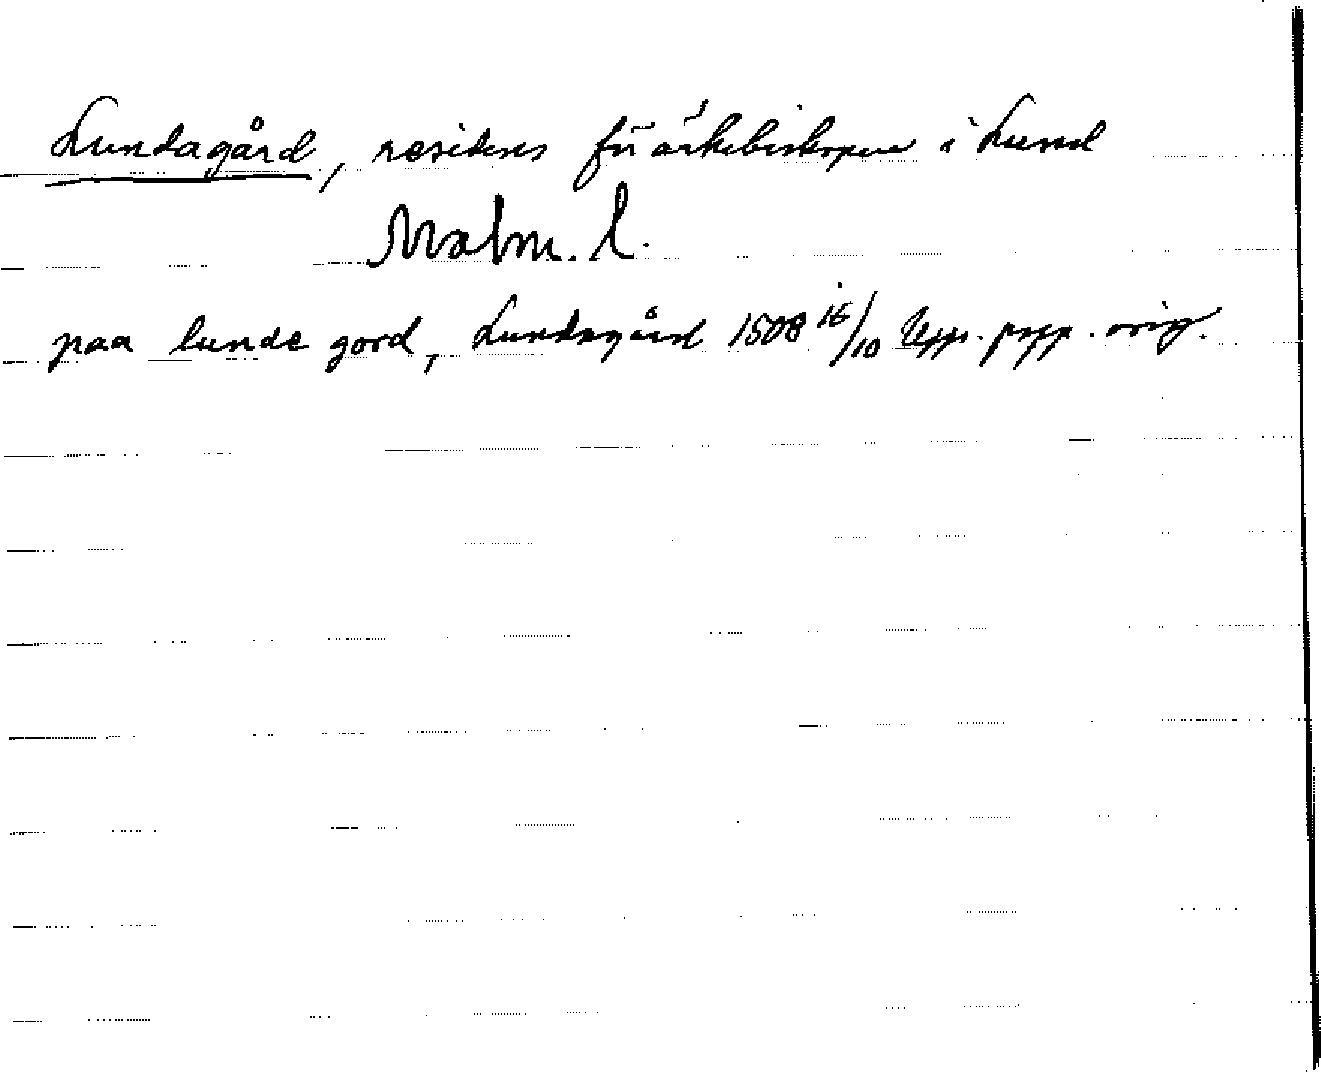 Lundagård, residens för ärkebiskopen i Lund
Malm. l.
paa lunde gord, Lundagård 1508 16/10 Upp. papp. orig.